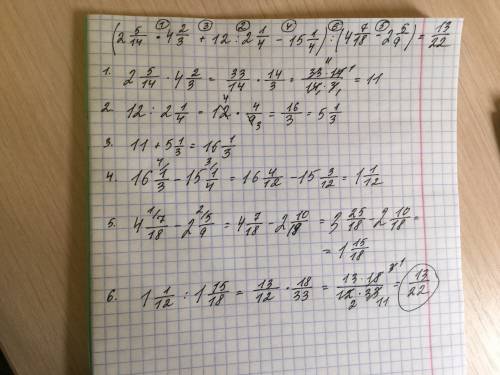 ① ③ ② ④ ⑥ ⑤
(2 5/14 · 4 2/3 + 12 : 2 1/4 − 15 1/4) : (4 7/18 − 2 5/9) = 13/22
1. 2 5/14 · 4 2/3 = 33/14 · 14/3 = 33·14/14·3 = 11
2. 12 : 2 1/4 = 12 · 4/9 = 16/3 = 5 1/3
3. 11 + 5 1/3 = 16 1/3
4. 16 1/3 − 15 1/4 = 16 4/12 − 15 3/12 = 1 1/12
5. 4 7/18 − 2 5/9 = 4 7/18 − 2 10/18 = 3 25/18 − 2 10/18 =
= 1 15/18
6. 1 1/12 : 1 15/18 = 13/12 · 18/33 = 13·18/12·33 = 13/22